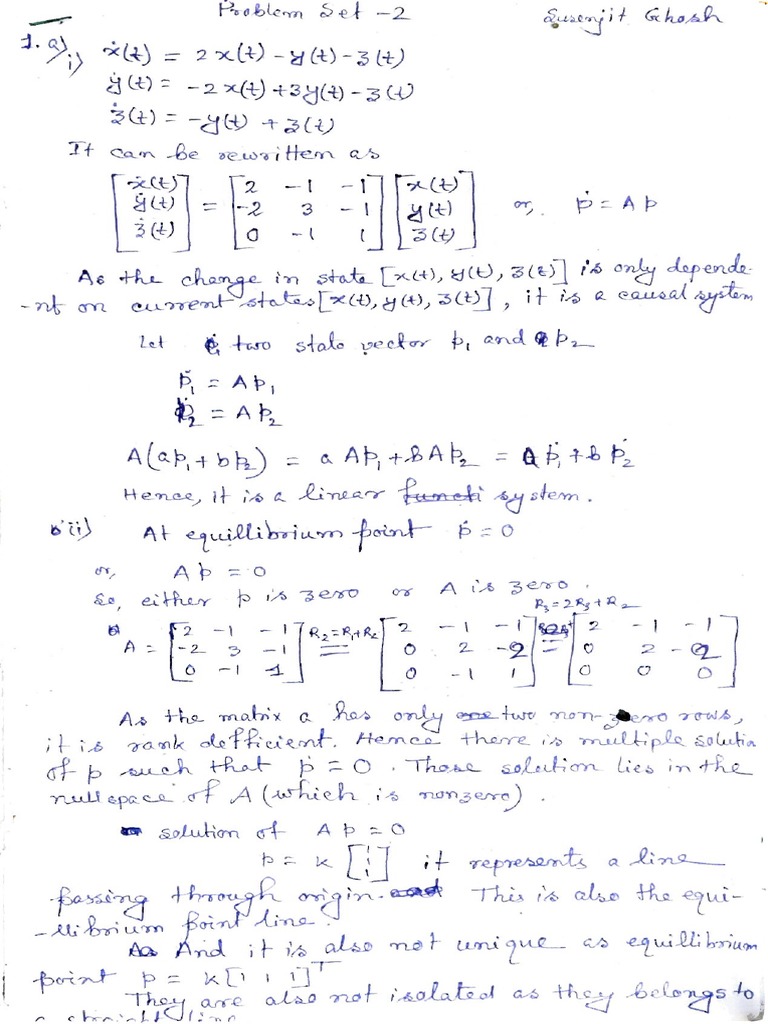 Problem Set -2
Susenjit Ghosh
1. a) i) ẋ(t) = 2x(t) - y(t) - z(t)
ẏ(t) = -2x(t) + 3y(t) - z(t)
ż(t) = -y(t) + z(t)
It can be rewritten as
[ẋ(t)] = [2 -1 -1] [x(t)]
[ẏ(t)] = [-2 3 -1] [y(t)] or, ṗ = Ap
[ż(t)] = [0 -1 1] [z(t)]
As the change in state [x(t), y(t), z(t)] is only depende-
-nt on current states [x(t), y(t), z(t)], it is a causal system
Let two state vector p₁ and p₂
ṗ₁ = Ap₁
ṗ₂ = Ap₂
A(ap₁ + bp₂) = a Ap₁ + bAp₂ = aṗ₁ + bṗ₂
Hence, it is a linear functi system.
ii) At equillibrium point ṗ = 0
or, Ap = 0
So, either p is zero or A is zero.
R₃ = 2R₃ + R₂
A = [2 -1 -1] R₂=R₁+R₂ [2 -1 -1] = [2 -1 -1]
[-2 3 -1] = [0 2 -2] [0 2 -2]
[0 -1 1] [0 -1 1] [0 0 0]
As the matrix a has only one two non-zero rows,
it is rank defficient. Hence there is multiple solutio
of p such that ṗ = 0. Those solution lies in the
null space of A (which is nonzero).
solution of Ap = 0
p = k [1 1 1] it represents a line
passing through origin. and This is also the equi-
-llibrium point line.
As And it is also not unique as equillibrium
point p = k[1 1 1]ᵀ
They are also not isolated as they belongs to
a straight line